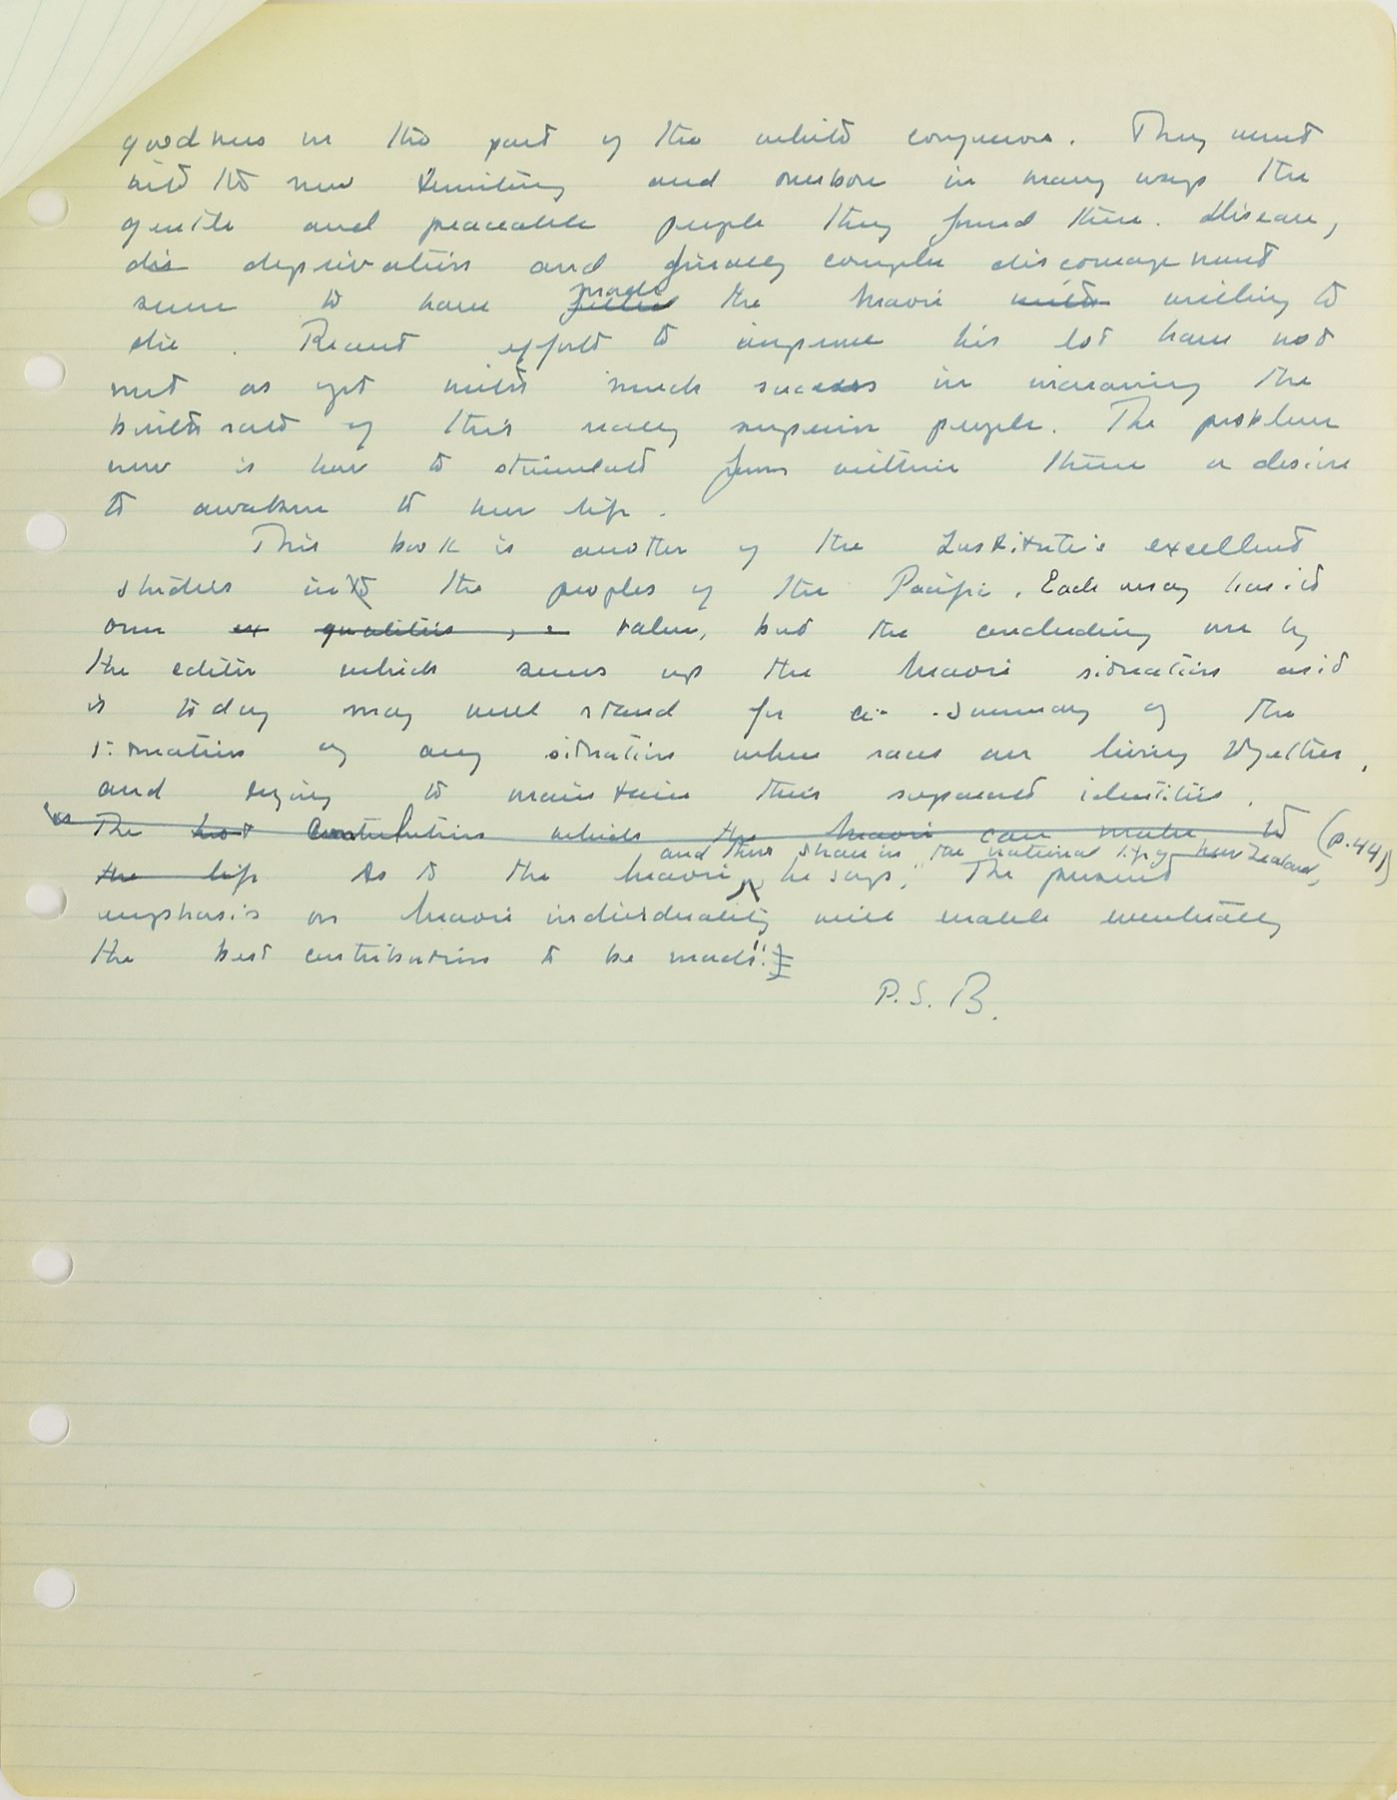 goodness on the part of the white conquerors. They went
into the new territory and overbore in many ways the
gentle and peaceable people they found there. Disease,
dis deprivation and finally complete discouragement
seem to have filled made the Maori with willing to
die. Recent efforts to improve his lot have not
met as yet with much success in increasing the
birth rate of this really superior people. The problem
now is how to stimulate from within them a desire
to awaken to new life.
This book is another of the Institute's excellent
studies into the peoples of the Pacific. Each essay has its
own ex qualities, a value, but the concluding one by
the editor which sums up the Maori situation as it
is today may well stand for a summary of the
situation of any situation where races are living together,
and trying to maintain their separate identities.
"The best Contribution which the Maori can make to (p.441)
and their share in the national life of New Zealand,
the life As to the Maori, he says, "The present
emphasis on Maori individuality will enable eventually
the best contribution to be made."
P.S.B.